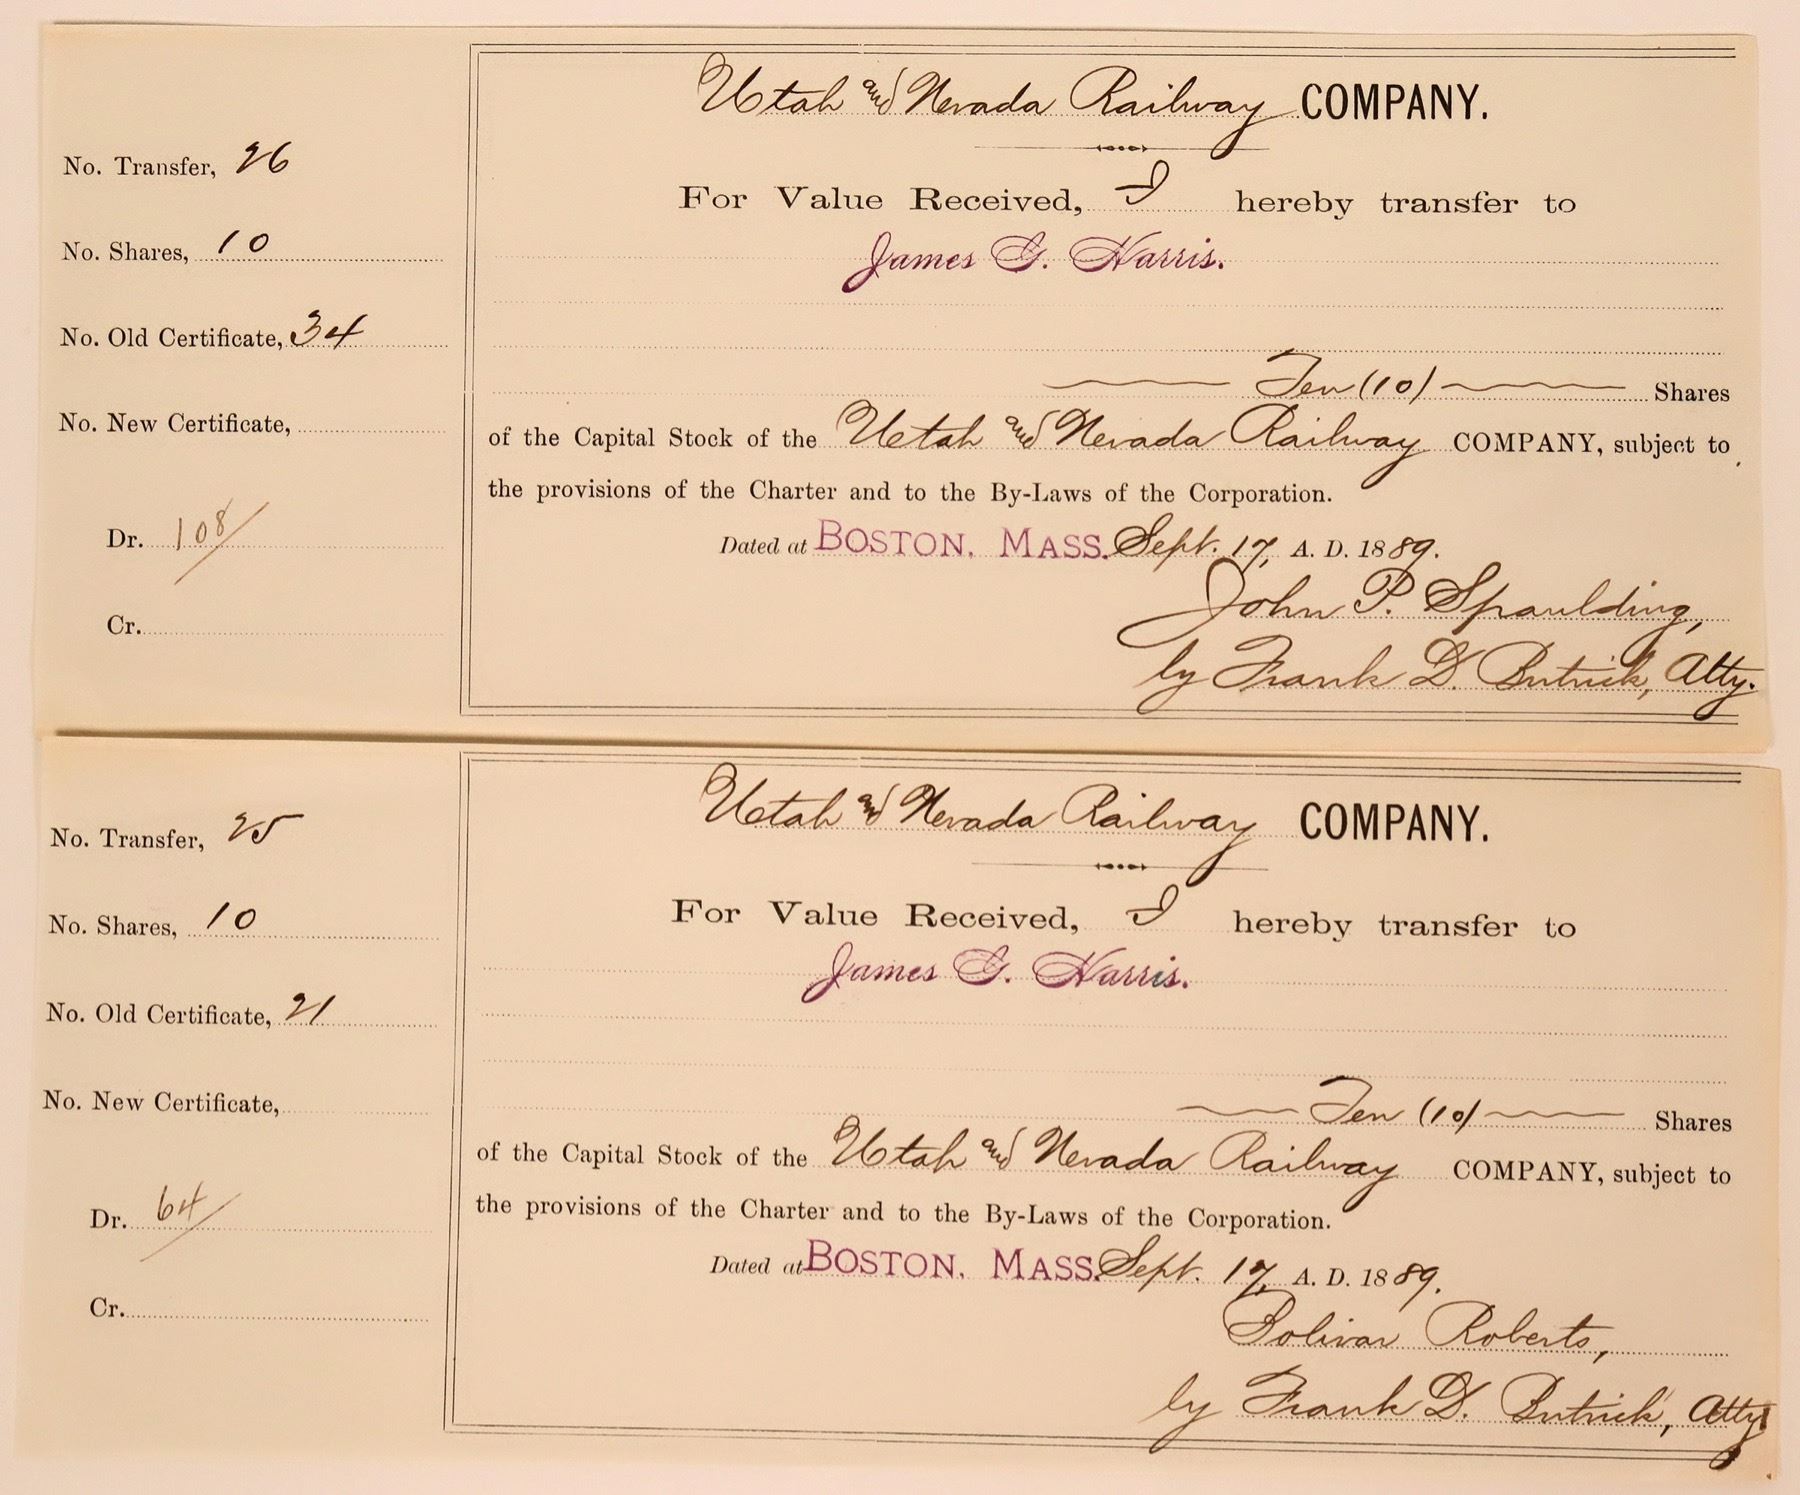 Utah and Nevada Railway COMPANY.
No. Transfer, 26
For Value Received, I hereby transfer to
No. Shares, 10
James G. Harris.
No. Old Certificate, 34
Ten (10) Shares
No. New Certificate,
of the Capital Stock of the Utah and Nevada Railway COMPANY, subject to
the provisions of the Charter and to the By-Laws of the Corporation.
Dr. 108/
Dated at BOSTON, MASS. Sept. 17, A. D. 1889.
Cr.
John P. Spaulding,
by Frank D. Butrick, Atty.
Utah and Nevada Railway COMPANY.
No. Transfer, 25
For Value Received, I hereby transfer to
No. Shares, 10
James G. Harris.
No. Old Certificate, 21
No. New Certificate,
Ten (10) Shares
of the Capital Stock of the Utah and Nevada Railway COMPANY, subject to
the provisions of the Charter and to the By-Laws of the Corporation.
Dr. 64/
Dated at BOSTON, MASS. Sept. 17, A. D. 1889.
Cr.
Bolivar Roberts,
by Frank D. Butrick, Atty